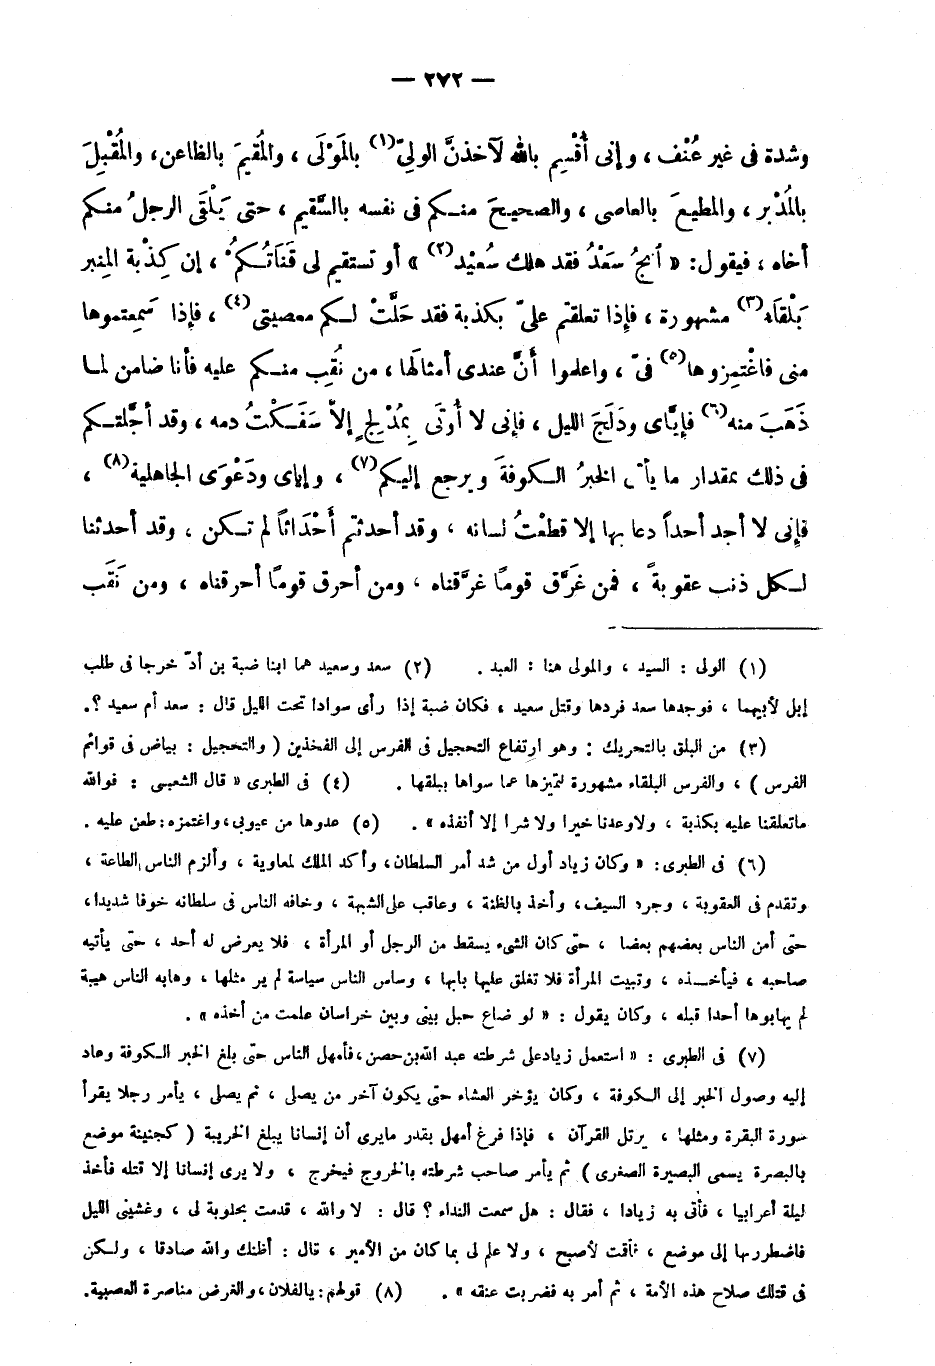 — ٢٧٢ —
وشدة فى غير عُنْف ، وإنى أُقْسِم بالله لآخذنَّ الولىّ(١) بالمَوْلَى ، والمُقيمَ بالظاعن، والمُقْبِلَ
بالمُدْبر ، والمطيعَ بالعاصى ، والصحيحَ منكم فى نفسه بالسَّقيم ، حتى يَلْقَى الرجلُ منكم
أخاه ، فيقول: « اُنجُ سَعْدُ فقد هلك سُعَيْد(٢) » أو تستقيم لى قَنَاتُكمُ ، إن كِذْبة المِنبر
بَلْقاَء(٣) مشهورة ، فإذا تعلقتم علىّ بكذبة فقد حَلَّتْ لكم معصيتى(٤) ، فإذا سَمِعتموها
منى فاغْتمِزوها(٥) فىّ ، واعلموا أنَّ عندى أمثالَها ، من نُقِب منكم عليه فأنا ضامن لما
ذَهَبَ منه(٦) فإيَّاى ودَلَجَ الليل ، فإنى لا أُوتَى بِمُدْلجٍ إلاَّ سَفَكْتُ دمه ، وقد أجَّلتكم
فى ذلك بمقدار ما يأتى الخبرُ الكوفةَ ويرجع إليكم(٧) ، وإياى ودَعْوَى الجاهلية(٨) ،
فإنى لا أجد أحداً دعا بها إلا قطعْتُ لسانه ، وقد أحدثتم أَحْدَاثاً لم تكن ، وقد أحدثنا
لكل ذنب عقوبةً ، فمن غَرَّق قومًا غرَّقناه ، ومن أحرق قومًا أحرقناه ، ومن نَقَب
(١) الولى : السيد ، والمولى هنا : العبد . (٢) سعد وسعيد هما ابنا ضبة بن أدّ خرجا فى طلب
إبل لأبيهما ، فوجدها سعد فردها وقتل سعيد ، فكان ضبة إذا رأى سوادا تحت الليل قال : سعد أم سعيد ؟.
(٣) من البلق بالتحريك : وهو ارتفاع التحجيل فى الفرس إلى الفخذين ( والتحجيل : بياض فى قوائم
الفرس ) ، والفرس البلقاء مشهورة لتميزها عما سواها ببلقها . (٤) فى الطبرى « قال الشعبى : فوالله
ماتعلقنا عليه بكذبة ، ولاوعدنا خيرا ولا شرا إلا أنفذه » . (٥) عدوها من عيوبى، واغتمزه: طعن عليه .
(٦) فى الطبرى: « وكان زياد أول من شد أمر السلطان، وأكد الملك لمعاوية ، وألزم الناس الطاعة ،
وتقدم فى العقوبة ، وجرد السيف، وأخذ بالظنة ، وعاقب على الشبهة ، وخافه الناس فى سلطانه خوفا شديدا،
حتى أمن الناس بعضهم بعضا ، حتى كان الشىء يسقط من الرجل أو المرأة ، فلا يعرض له أحد ، حتى يأتيه
صاحبه ، فيأخذه ، وتبيت المرأة فلا تغلق عليها بابها ، وساس الناس سياسة لم ير مثلها ، وهابه الناس هيبة
لم يهابوها أحدا قبله ، وكان يقول : « لو ضاع حبل بينى وبين خراسان علمت من أخذه » .
(٧) فى الطبرى : « استعمل زياد على شرطته عبد الله بن حصن، فأمهل الناس حتى بلغ الخبر الكوفة وعاد
إليه وصول الخبر إلى الكوفة ، وكان يؤخر العشاء حتى يكون آخر من يصلى ، ثم يصلى ، يأمر رجلا يقرأ
سورة البقرة ومثلها ، يرتل القرآن ، فإذا فرغ أمهل بقدر مايرى أن إنسانا يبلغ الخريبة ( كجنينة موضع
بالبصرة يسمى البصيرة الصغرى ) ثم يأمر صاحب شرطته بالخروج فيخرج ، ولا يرى إنسانا إلا قتله فأخذ
ليلة أعرابيا ، فأتى به زيادا ، فقال : هل سمعت النداء ؟ قال : لا والله ، قدمت بحلوبة لى ، وغشينى الليل
فاضطررتها إلى موضع ، فأقت لأصبح ، ولا علم لى بما كان من الأمير ، قال : أظنك والله صادقا ، ولكن
فى قتلك صلاح هذه الأمة ، ثم أمر به فضربت عنقه » . (٨) قولهم: يالفلان، والغرض مناصرة العصبية.